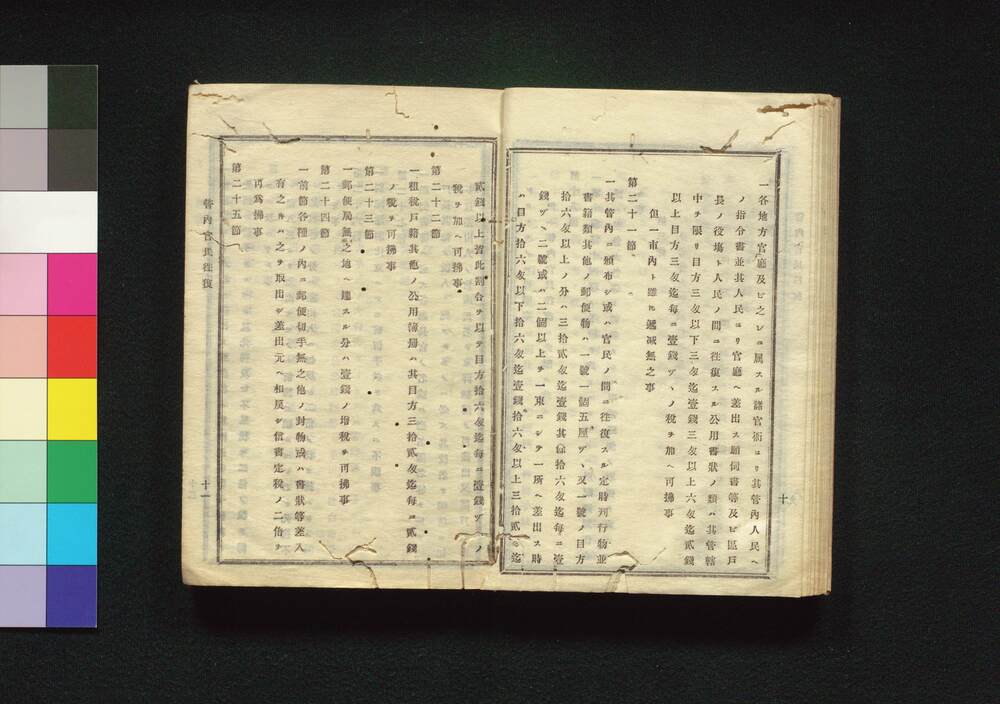 一各地方官廳及ビ之レニ属スル諸官衙ヨリ其管內人民ヘ
ノ指令書並其人民ヨリ官廳ヘ差出ス願伺書等及ビ區戸
長ノ役塲ト人民ノ間ニ往復スル公用書狀ノ類ハ其管轄
中ヲ限リ目方三匁以下三匁迄壹錢三匁以上六匁迄貳錢
以上目方三匁迄每ニ壹錢ヅヽノ稅ヲ加ヘ可拂事
但一市內ト雖𪜈遞减無之事
第二十一節
一其管內ニ頒布シ或ハ官民ノ間ニ往復スル定時刋行物並
書籍類其他ノ郵便物ハ一號一個五厘ヅヽ又一號ノ目方
拾六匁以上ノ分ハ三拾貳匁迄壹錢其餘拾六匁迄每ニ壹
錢ヅヽ二號或ハ二個以上ヲ一束ニシテ一所ヘ差出ス時
ハ目方拾六匁以下拾六匁迄壹錢拾六匁以上三拾貳匁迄
十
貳錢以上皆此割合ヲ以テ目方拾六匁迄每ニ壹錢ヅヽノ
稅ヲ加ヘ可拂事
第二十二節
一租稅戸籍其他ノ公用簿冊ハ其目方三拾貳匁迄每ニ貳錢
ノ稅ヲ可拂事
第二十三節
一郵便局無之地ヘ達スル分ハ壹錢ノ增稅ヲ可拂事
第二十四節
一前節各種ノ內ニ郵便切手無之他ノ封物或ハ書狀等差入
有之ルハ之ヲ取出シ差出元ヘ相戾シ信書定稅ノ二倍ヲ
可爲拂事
第二十五節
管內官民往復
十一